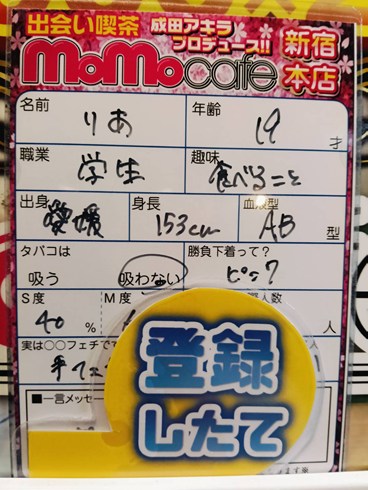 出会い喫茶 成田アキラプロデュース!! 新宿本店
MoMocafe
名前 りあ 年齢 19 才
職業 学生 趣味 食べること
出身 愛媛 身長 153cm 血液型 AB 型
タバコは 吸う 吸わない 勝負下着って? ピンク
S度 40 % M度 人数 人
実は○○フェチです
手フェ
■一言メッセー
登録
したて